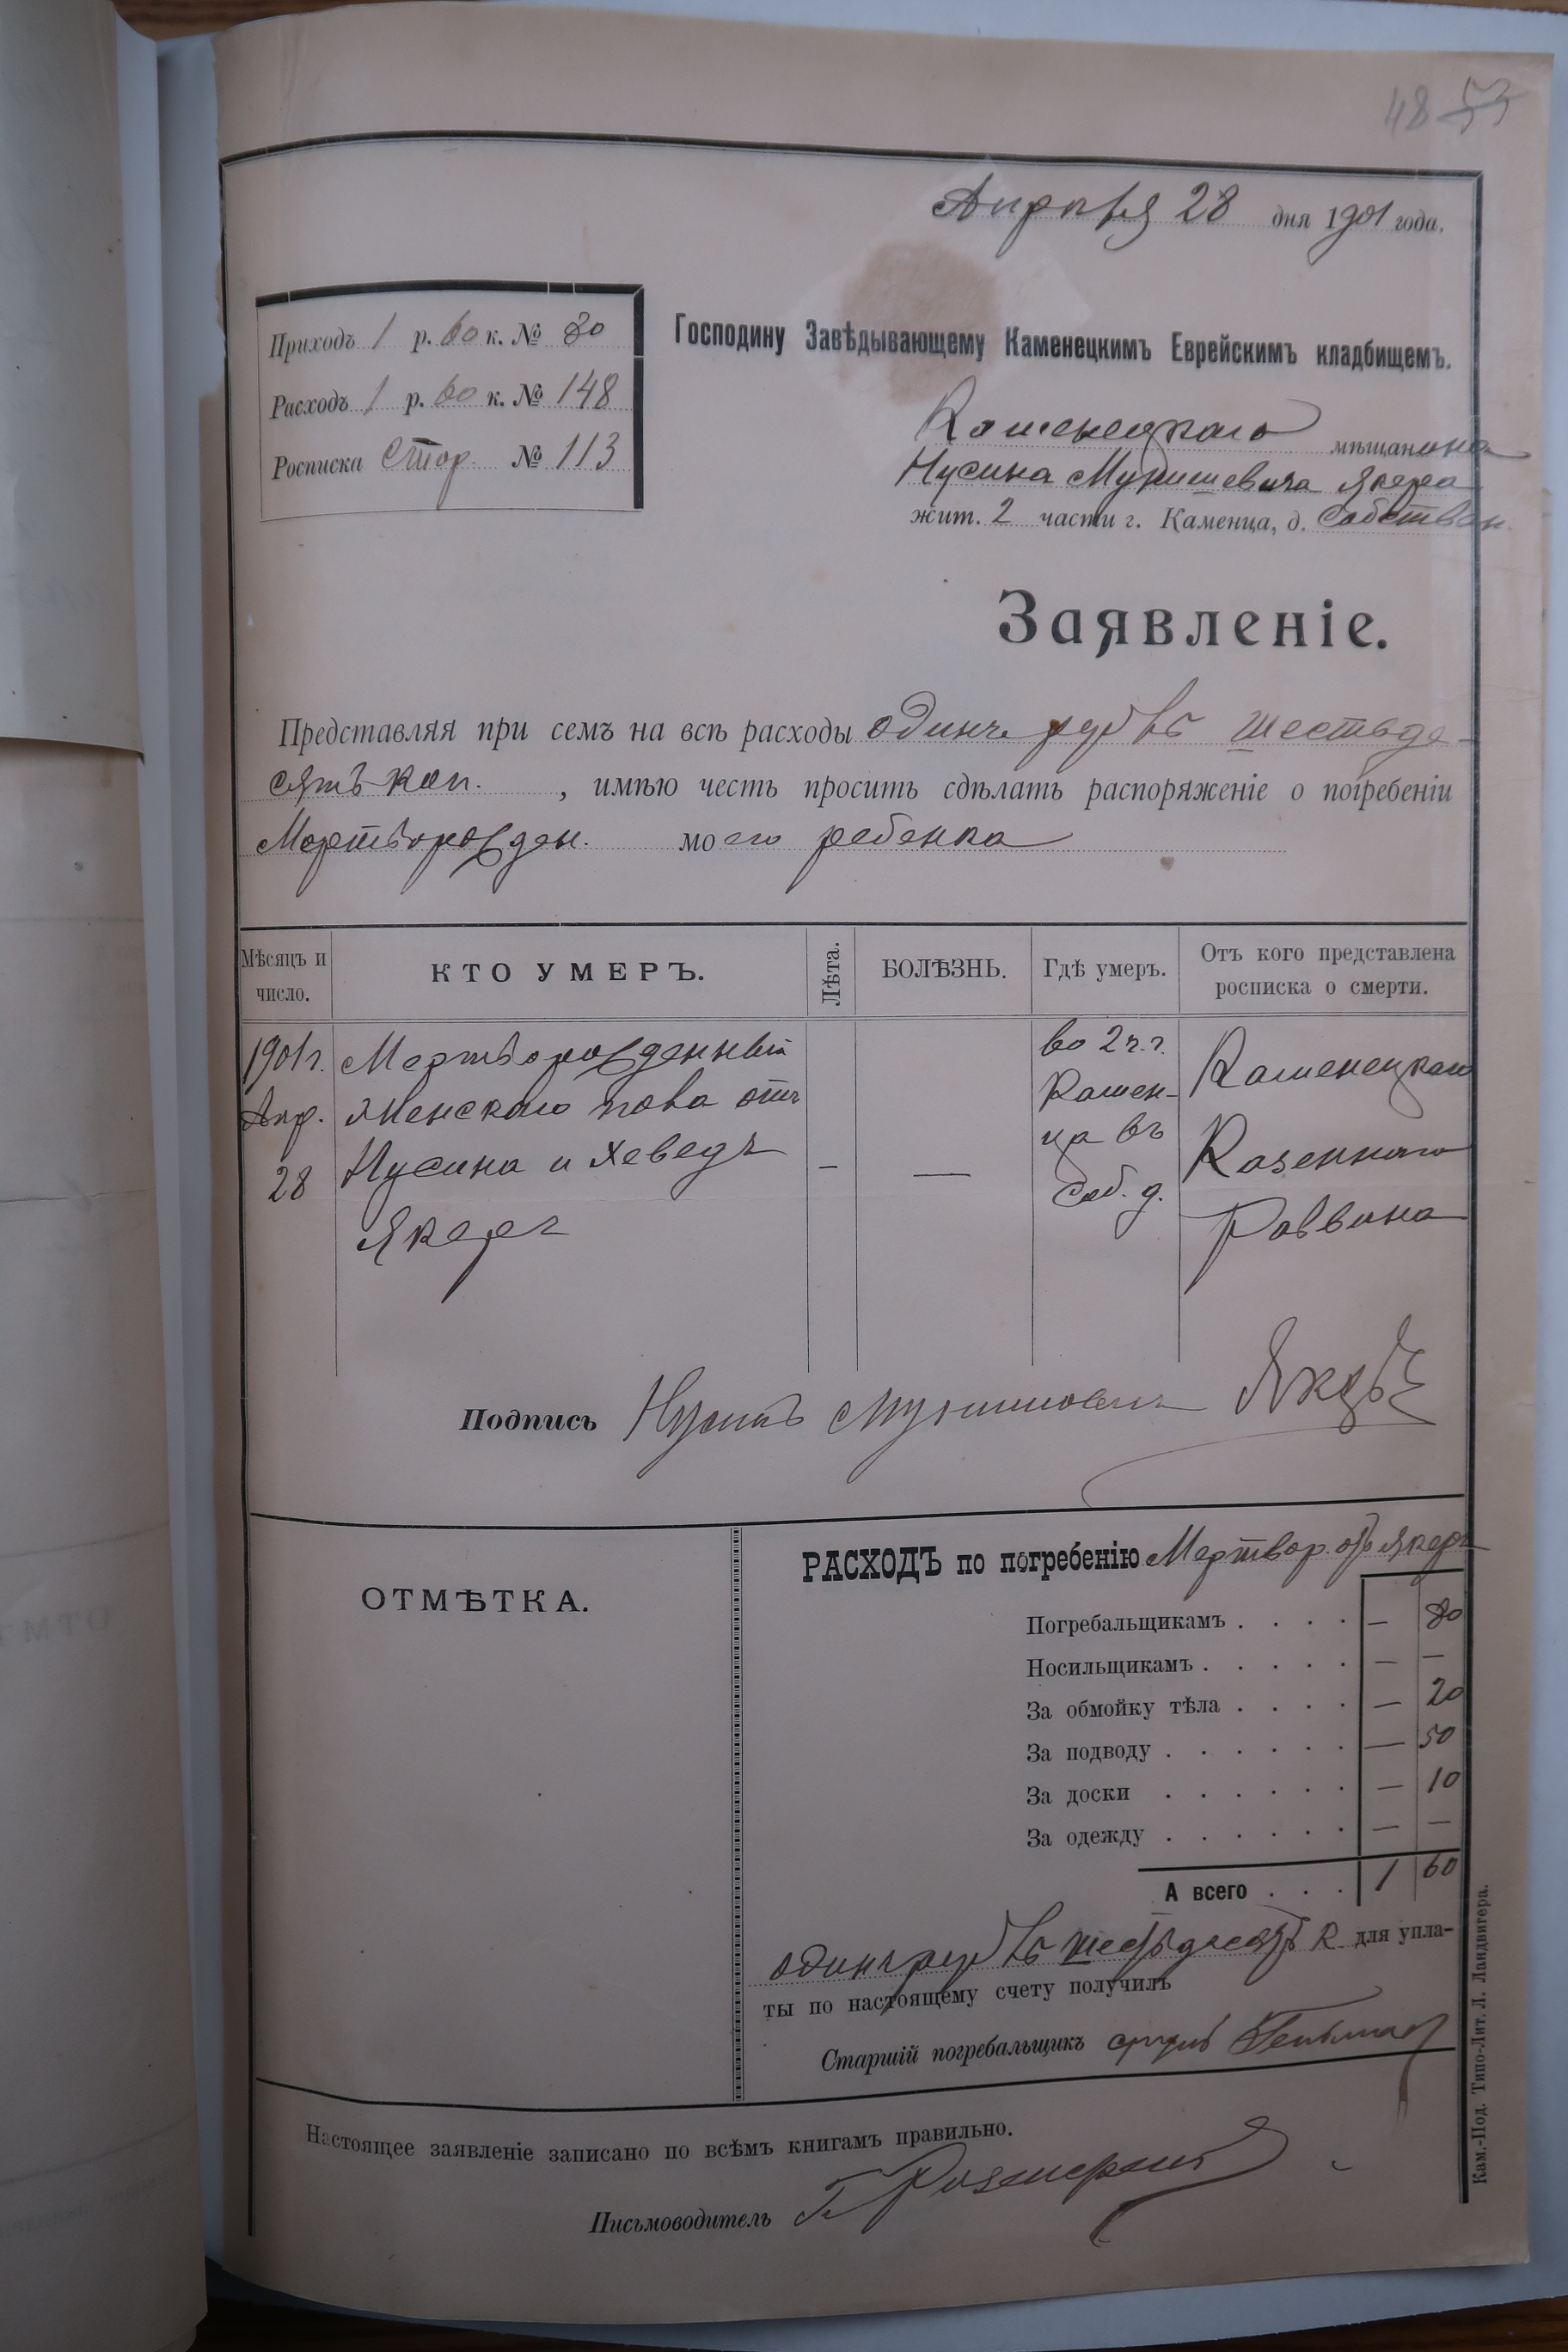 48 53
Апрѣля 28 дня 1901 года.
Приходъ 1 р. 60 к. № 80
Расходъ 1 р. 60 к. № 148
Росписка Стор. № 113
Господину Завѣдывающему Каменецкимъ Еврейскимъ кладбищемъ.
Каменецкаго мѣщанина
Нусина Мунишевича Якера
жит. 2 части г. Каменца, д. Собствен.
Заявленіе.
Представляя при семъ на всѣ расходы одинъ рубль шестьде-
сятъ коп. , имѣю честь просить сдѣлать распоряженіе о погребеніи
Мертворожден. моего ребенка
Мѣсяцъ и число.
КТО УМЕРЪ.
Лѣта.
БОЛѢЗНЬ.
Гдѣ умеръ.
Отъ кого представлена росписка о смерти.
1901 г. Мертворожденный во 2 ч. г. Каменецкаго
Апр. женскаго пола отъ Камен-
28 Нусина и Хеведъ — — ца въ Казеннаго
Якеръ соб. д. Раввина
Подпись Нусинъ Мунишовичъ Якеръ
ОТМѢТКА.
РАСХОДЪ по погребенію Мертвор. отъ Якеръ
Погребальщикамъ . . . . — 80
Носильщикамъ . . . . . — —
За обмойку тѣла . . . . — 20
За подводу . . . . . . — 50
За доски . . . . . . — 10
За одежду . . . . . . — —
А всего . . . 1 60
одинъ рубль шестьдесятъ к для упла-
ты по настоящему счету получилъ
Старшій погребальщикъ
Настоящее заявленіе записано по всѣмъ книгамъ правильно.
Письмоводитель
Кам.-Под. Типо-Лит. Л. Ландвигера.